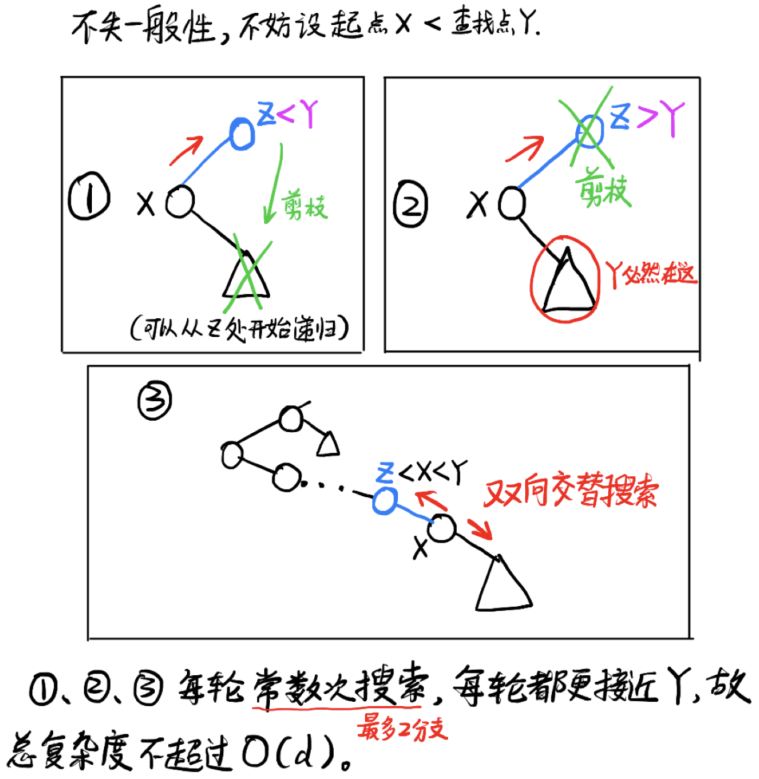 不失一般性，不妨设起点X < 查找点Y.
① X Z<Y 剪枝
(可以从Z处开始递归)
② X Z>Y 剪枝
Y必然在这
③
Z<X<Y
X
双向交替搜索
①、②、③ 每轮常数次搜索，每轮都更接近Y，故
最多2分支
总复杂度不超过O(d)。